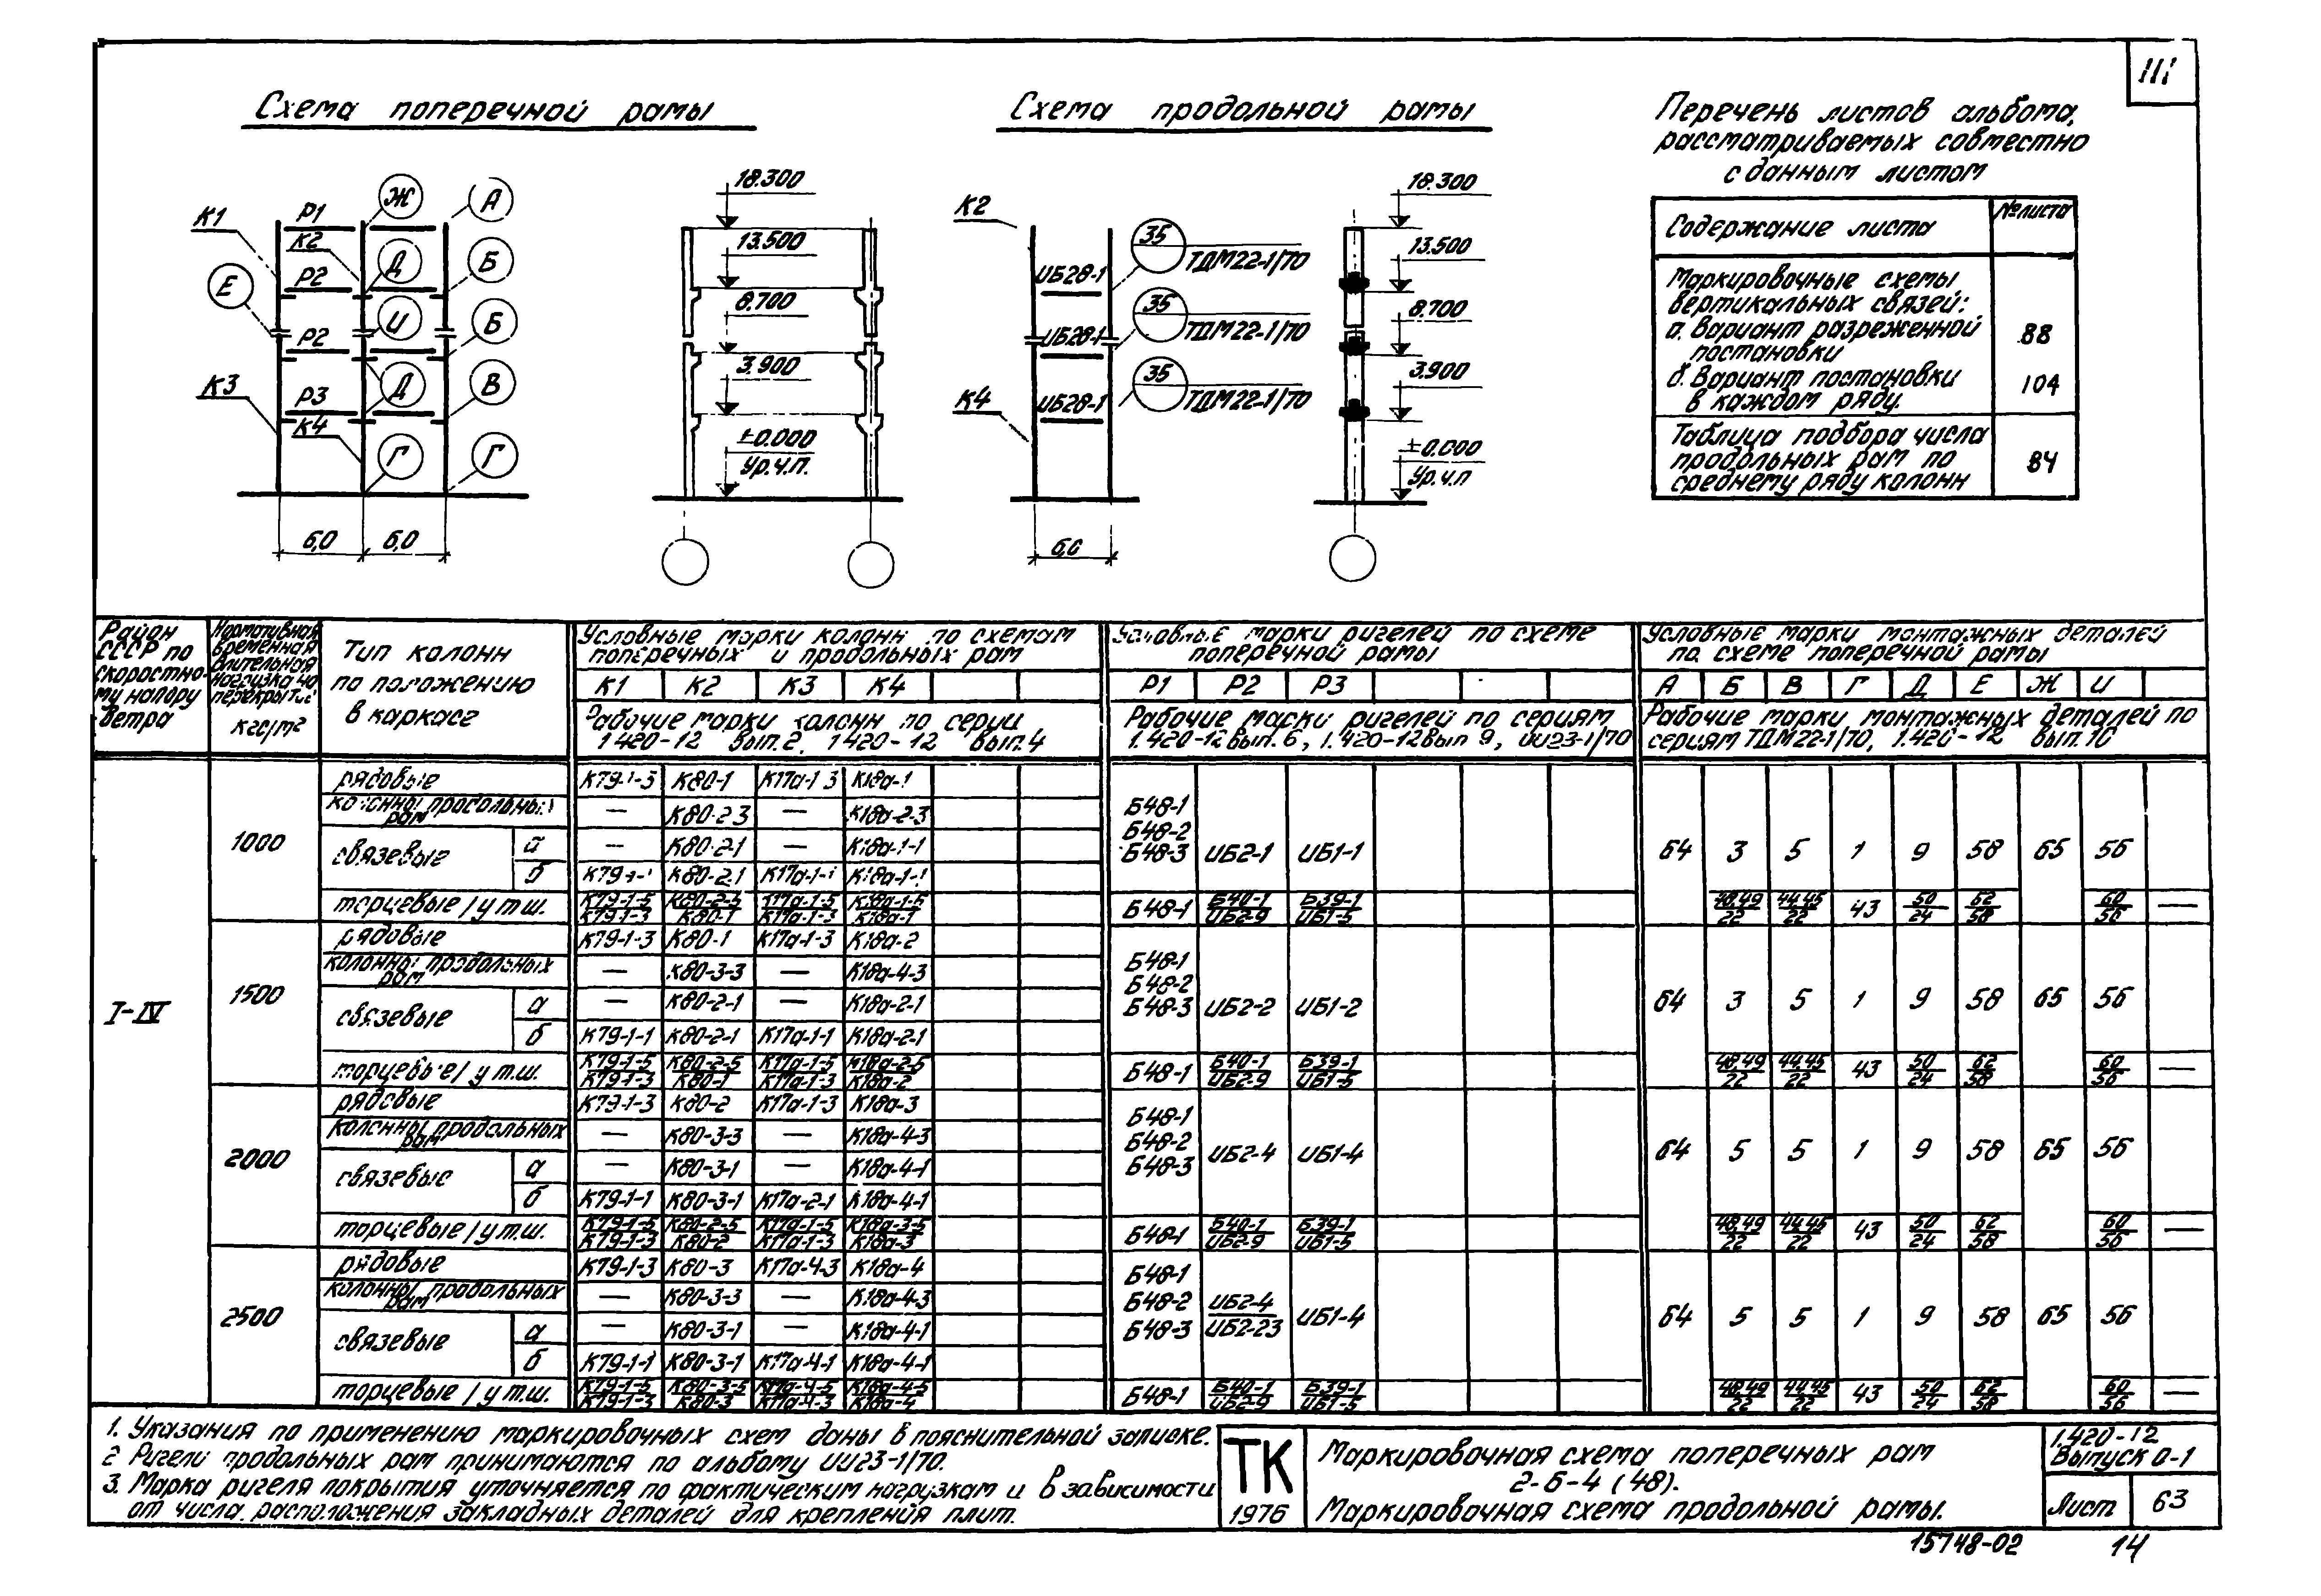 III
Схема поперечной рамы
Схема продольной рамы
Перечень листов альбома,
рассматриваемых совместно
с данным листом
Содержание листа
№ листа
Маркировочные схемы
вертикальных связей:
а. Вариант разреженной
постановки
88
б. Вариант постановки
в каждом ряду.
104
Таблица подбора числа
продольных рам по
среднему ряду колонн
84
К1 Р1 К2 Ж А
Р2 Д Б
Е Р2 И Б
К3 Р3 К4 Д В
Г Г
6,0 6,0
18.300
13.500
8.700
3.900
±0.000
Ур.ч.п.
К2
ИБ28-1 35 ТДМ22-1/70
ИБ28-1 35 ТДМ22-1/70
К4 ИБ28-1 35 ТДМ22-1/70
6,0
18.300
13.500
8.700
3.900
±0.000
Ур.ч.п
Район
СССР по
скоростно-
му напору
ветра
Нормативная
временная
длительная
нагрузка на
перекрытие
кгс/м²
Тип колонн
по положению
в каркасе
Условные марки колонн по схемам
поперечных и продольных рам
К1 К2 К3 К4
Рабочие марки колонн по серии
1.420-12 вып.2, 1.420-12 вып.4
Условные марки ригелей по схеме
поперечной рамы
Р1 Р2 Р3
Рабочие марки ригелей по сериям
1.420-12 вып.6, 1.420-12 вып 9, ИИ23-1/70
Условные марки монтажных деталей
по схеме поперечной рамы
А Б В Г Д Е Ж И
Рабочие марки монтажных деталей по
сериям ТДМ22-1/70, 1.420-12 вып.10
I-IV
1000
рядовые К79-1-3 К80-1 К17а-1-3 К18а-1
колонны продольных рам — К80-2-3 — К18а-2-3
связевые а — К80-2-1 — К18а-1-1
б К79-1-1 К80-2-1 К17а-1-1 К18а-1-1
Б48-1
Б48-2
Б48-3 ИБ2-1 ИБ1-1
64 3 5 1 9 58 65 56
торцевые/у т.ш. К79-1-5 К80-2-5 К17а-1-5 К18а-1-5
К79-1-3 К80-1 К17а-1-3 К18а-1
Б48-1 Б40-1 Б39-1
ИБ2-9 ИБ1-5
48,49 44,45 43 50 62 60 —
22 22 24 58 56
1500
рядовые К79-1-3 К80-1 К17а-1-3 К18а-2
колонны продольных рам — К80-3-3 — К18а-4-3
связевые а — К80-2-1 — К18а-2-1
б К79-1-1 К80-2-1 К17а-1-1 К18а-2-1
Б48-1
Б48-2
Б48-3 ИБ2-2 ИБ1-2
64 3 5 1 9 58 65 56
торцевые/у т.ш. К79-1-5 К80-2-5 К17а-1-5 К18а-2-5
К79-1-3 К80-1 К17а-1-3 К18а-2
Б48-1 Б40-1 Б39-1
ИБ2-9 ИБ1-5
48,49 44,45 43 50 62 60 —
22 22 24 58 56
2000
рядовые К79-1-3 К80-2 К17а-1-3 К18а-3
колонны продольных рам — К80-3-3 — К18а-4-3
связевые а — К80-3-1 — К18а-4-1
б К79-1-1 К80-3-1 К17а-2-1 К18а-4-1
Б48-1
Б48-2
Б48-3 ИБ2-4 ИБ1-4
64 5 5 1 9 58 65 56
торцевые/у т.ш. К79-1-5 К80-2-5 К17а-1-5 К18а-3-5
К79-1-3 К80-2 К17а-1-3 К18а-3
Б48-1 Б40-1 Б39-1
ИБ2-9 ИБ1-5
48,49 44,45 43 50 62 60 —
22 22 24 58 56
2500
рядовые К79-1-3 К80-3 К17а-4-3 К18а-4
колонны продольных рам — К80-3-3 — К18а-4-3
связевые а — К80-3-1 — К18а-4-1
б К79-1-1 К80-3-1 К17а-4-1 К18а-4-1
Б48-1
Б48-2 ИБ2-4
Б48-3 ИБ2-23 ИБ1-4
64 5 5 1 9 58 65 56
торцевые/у т.ш. К79-1-5 К80-3-5 К17а-4-5 К18а-4-5
К79-1-3 К80-3 К17а-4-3 К18а-4
Б48-1 Б40-1 Б39-1
ИБ2-9 ИБ1-5
48,49 44,45 43 50 62 60 —
22 22 24 58 56
1. Указания по применению маркировочных схем даны в пояснительной записке.
2 Ригели продольных рам принимаются по альбому ИИ23-1/70.
3. Марка ригеля покрытия уточняется по фактическим нагрузкам и в зависимости
от числа расположения закладных деталей для крепления плит.
ТК
1976
Маркировочная схема поперечных рам
2-6-4 (48).
Маркировочная схема продольной рамы.
1.420-12
Выпуск 0-1
Лист 63
15748-02 14